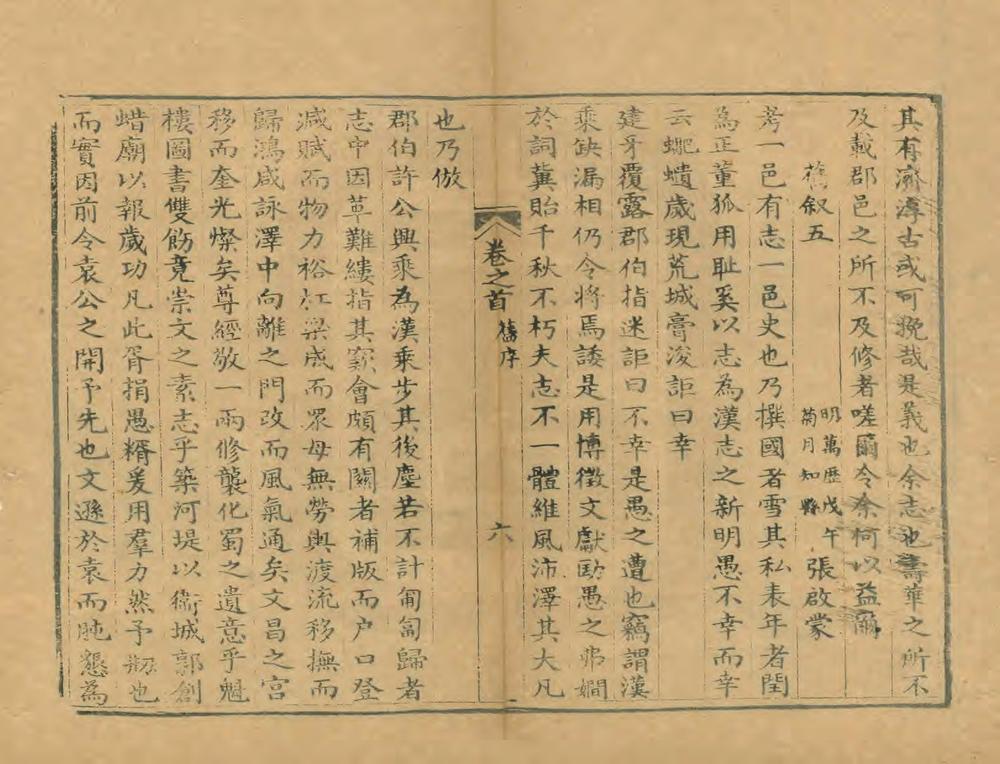 其有濟淳古或可挽哉是義也余志也壽華之所不
及載郡邑之所不及修者嗟爾令余柯以益爾
舊叙五 明萬歷戊午菊月知縣 張啟蒙
考一邑有志一邑史也乃撰國者雪其私表年者閏
為正董狐用耻奚以志為漢志之新明愚不幸而幸
云螕蟥歲現荒城膏浚詎曰幸
建牙覆露郡伯指迷詎曰不幸是愚之遭也竊謂漢
乘缺漏相仍令將焉諉是用博徵文獻勖愚之弗嫺
於詞冀貽千秋不朽夫志不一體維風沛澤其大凡
卷之首 舊序 六
也乃倣
郡伯許公興乘為漢乘步其後塵若不計匍匐歸者
志中因革難縷指其窾會頗有關者補版而户口登
減賦而物力裕杠梁成而眾母無勞輿渡流移撫而
歸鴻咸詠澤中向離之門改而風氣通矣文昌之宮
移而奎光燦矣尊經敬一兩修襲化蜀之遺意乎魁
樓圖書雙飭竟崇文之素志乎築河堤以衛城郭創
蜡廟以報歲功凡此胥捐愚糈爰用羣力然予刱也
而實因前令袁公之開予先也文遜於袁而肫懇為